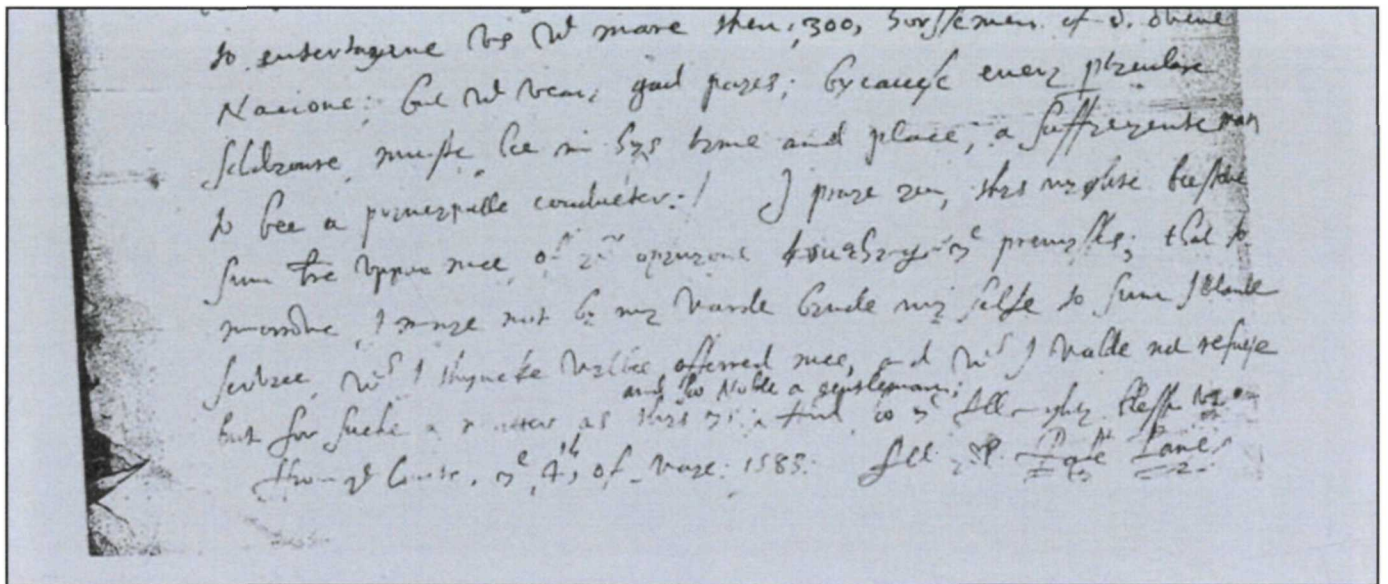 to entertayne us wt more then, 300, horssemen of
Nacione; but wt verie good payes; bycause every
muste bee in hys tyme and place, a suffycyente man
to bee a pryncypalle conducter:/ I praye you, thys nyghte bestowe
sum tyme uppon mee, of yor opynyone touchynge ye premysses; that to
morowe, I maye not by my worde bynde my selfe to sum
servyce, wch I thyncke wylbee offerred mee, and wch I walde not refuse
but for suche a matter as thys ys: and so Noble a gentleman; And so ye Allmyghty blesse
ye 4th, of 1585: Rafe Lane